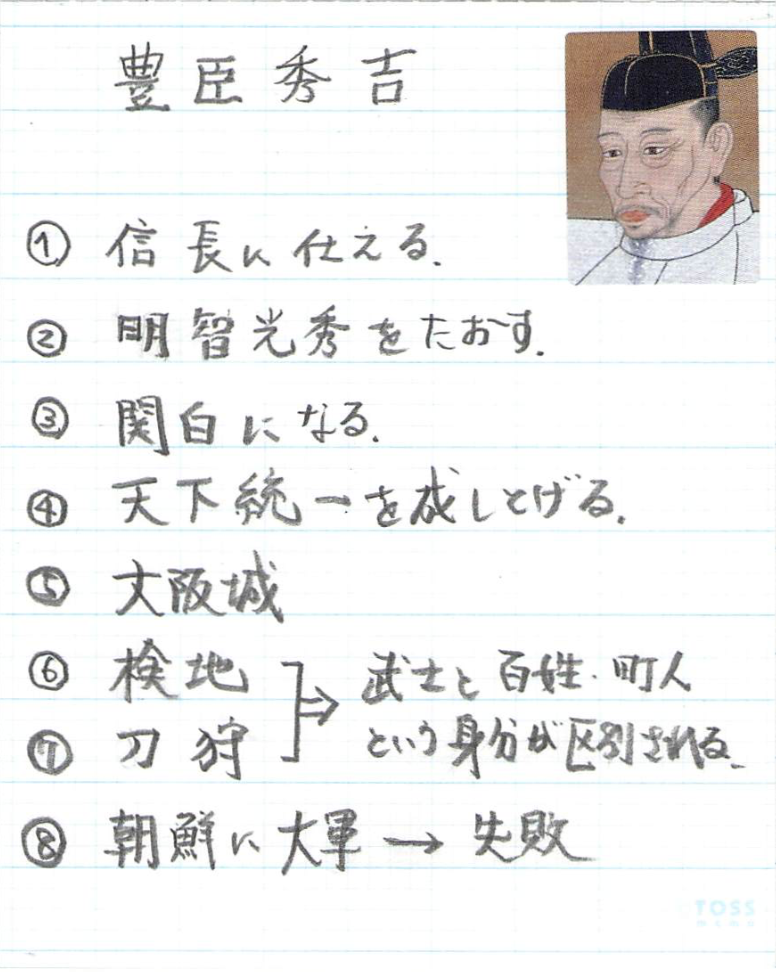 豊臣秀吉
① 信長に仕える.
② 明智光秀をたおす.
③ 関白になる.
④ 天下統一を成しとげる.
⑤ 大阪城
⑥ 検地
⑦ 刀狩
→ 武士と百姓・町人
という身分が区別される.
⑧ 朝鮮に大軍 → 失敗
TOSS
memo